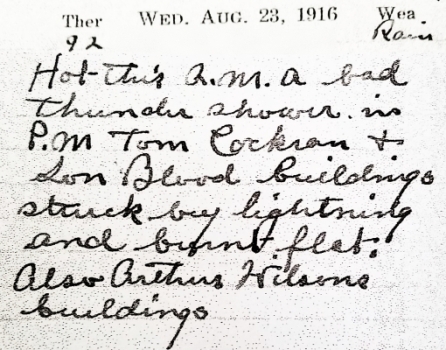 Ther WED. AUG. 23, 1916 Wea
92 Rain
Hot this A.M. a bad
thunder shower in
P.M Tom Cockran &
Lon Blood buildings
struck by lightning
and burnt flat.
Also Arthur Wilsons
buildings